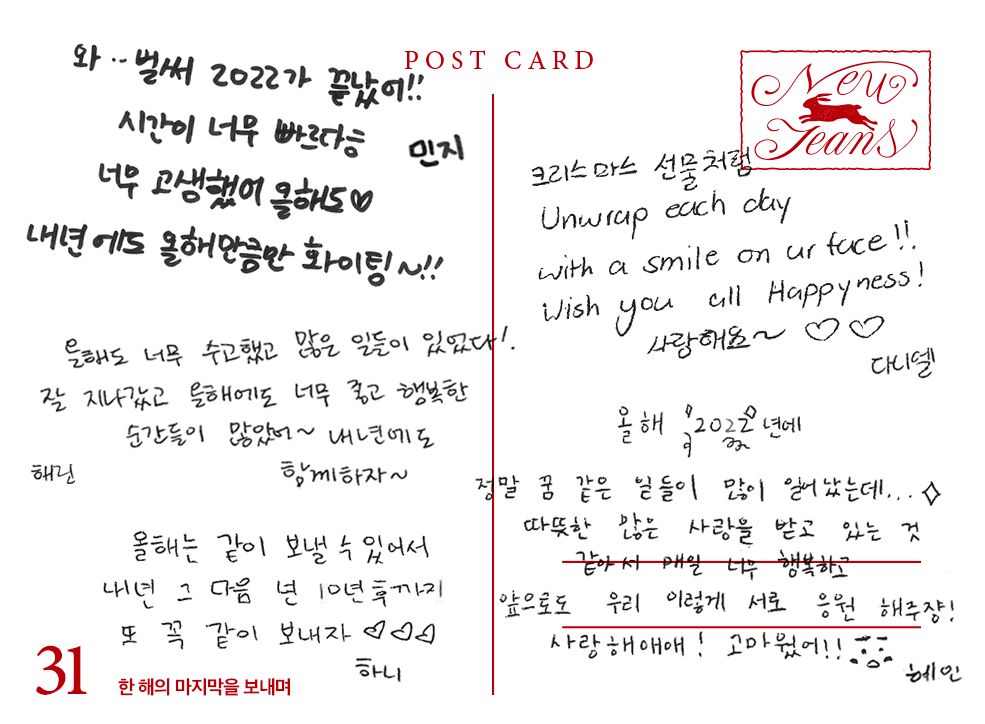 POST CARD
New
Jeans
와..벌써 2022가 끝났어!!
시간이 너무 빠르다능
민지
너무 고생했어 올해도♡
내년에도 올해만큼만 화이팅~!!
올해도 너무 수고했고 많은 일들이 있었다!.
잘 지나갔고 올해에도 너무 좋고 행복한
순간들이 많았어~ 내년에도
함께하자~
해린
올해는 같이 보낼 수 있어서
내년 그 다음 년 10년 후까지
또 꼭 같이 보내자 ♡♡♡
하니
크리스마스 선물처럼
Unwrap each day
with a smile on ur face!!
Wish you all Happyness!
사랑해요~ ♡♡
다니엘
올해 2022년에
정말 꿈 같은 일들이 많이 일어났는데...◇
따뜻한 많은 사랑을 받고 있는 것
같아서 매일 너무 행복하고
앞으로도 우리 이렇게 서로 응원 해주쟝!
사랑해애애! 고마웠어!!
혜인
31 한 해의 마지막을 보내며